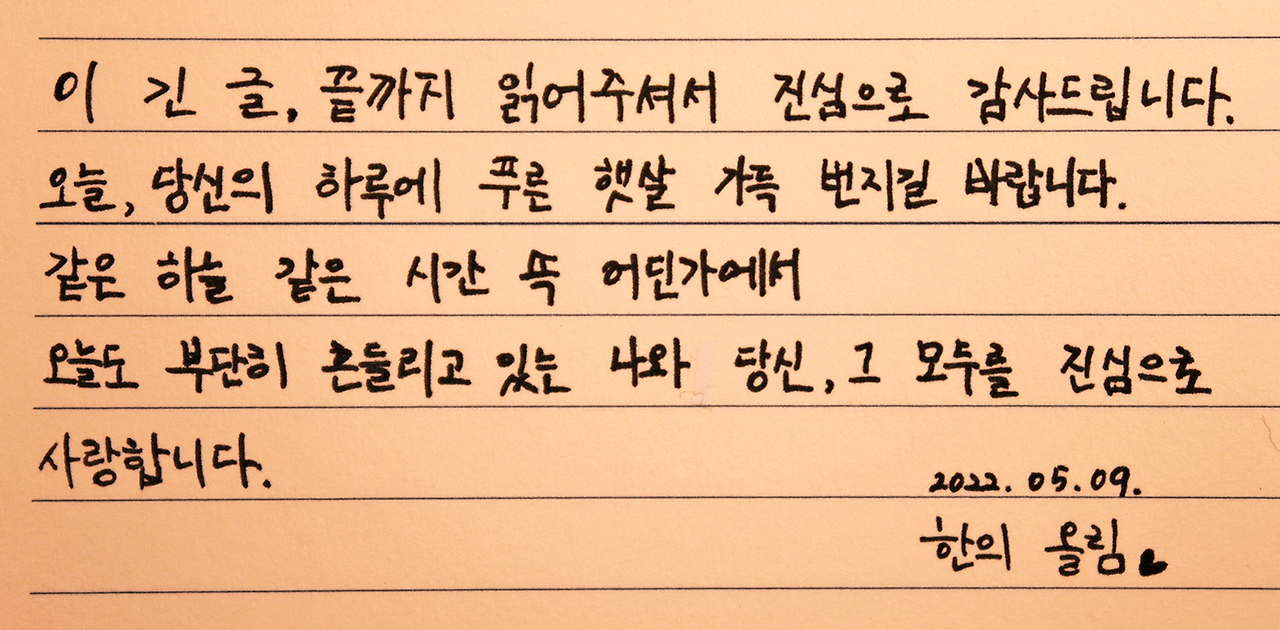 이 긴 글, 끝까지 읽어주셔서 진심으로 감사드립니다.
오늘, 당신의 하루에 푸른 햇살 가득 번지길 바랍니다.
같은 하늘 같은 시간 뚝 어딘가에서
오늘도 부단히 흔들리고 있는 나와 당신, 그 모두를 진심으로
사랑합니다.
2022. 05. 09.
한의 올림